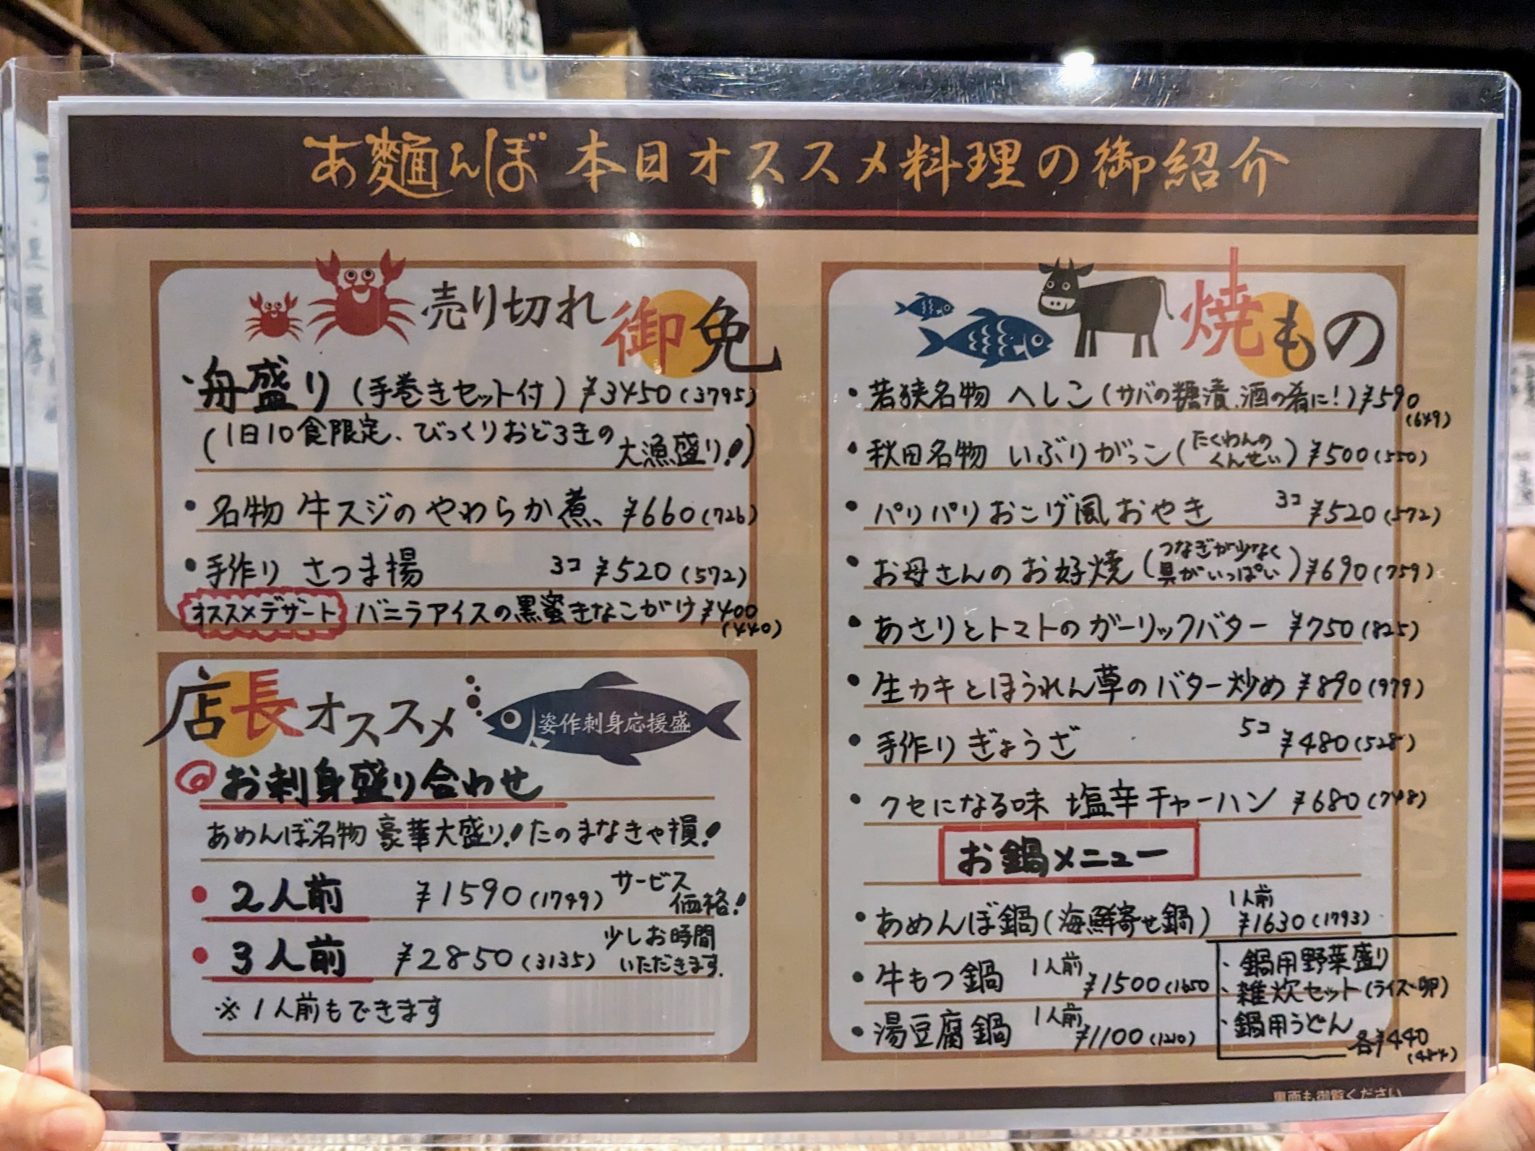 あ麺んぼ 本日オススメ料理の御紹介
売り切れ御免
・舟盛り(手巻きセット付) ¥3450(3795)
(1日10食限定、びっくりおどろきの大漁盛り!)
・名物 牛スジのやわらか煮、¥660(726)
・手作り さつま揚 3コ ¥520(572)
オススメデザート バニラアイスの黒蜜きなこがけ ¥400(440)
店長オススメ
姿作刺身応援盛
◎お刺身盛り合わせ
あめんぼ名物 豪華大盛り!たのまなきゃ損!
・2人前 ¥1590(1749) サービス価格!
・3人前 ¥2850(3135) 少しお時間いただきます。
※1人前もできます
焼もの
・若狭名物 へしこ(サバの糠漬、酒の肴に!) ¥590(649)
・秋田名物 いぶりがっこ(たくわんのくんせい) ¥500(550)
・パリパリおこげ風おやき 3コ ¥520(572)
・お母さんのお好焼(つなぎが少なく具がいっぱい) ¥690(759)
・あさりとトマトのガーリックバター ¥750(825)
・生カキとほうれん草のバター炒め ¥890(979)
・手作りぎょうざ 5コ ¥480(528)
・クセになる味 塩辛チャーハン ¥680(748)
お鍋メニュー
・あめんぼ鍋(海鮮寄せ鍋) 1人前 ¥1630(1793)
・牛もつ鍋 1人前 ¥1500(1650
・湯豆腐鍋 1人前 ¥1100(1210)
・鍋用野菜盛り
・雑炊セット(ライス・卵)
・鍋用うどん
各¥440(484)
裏面も御覧ください